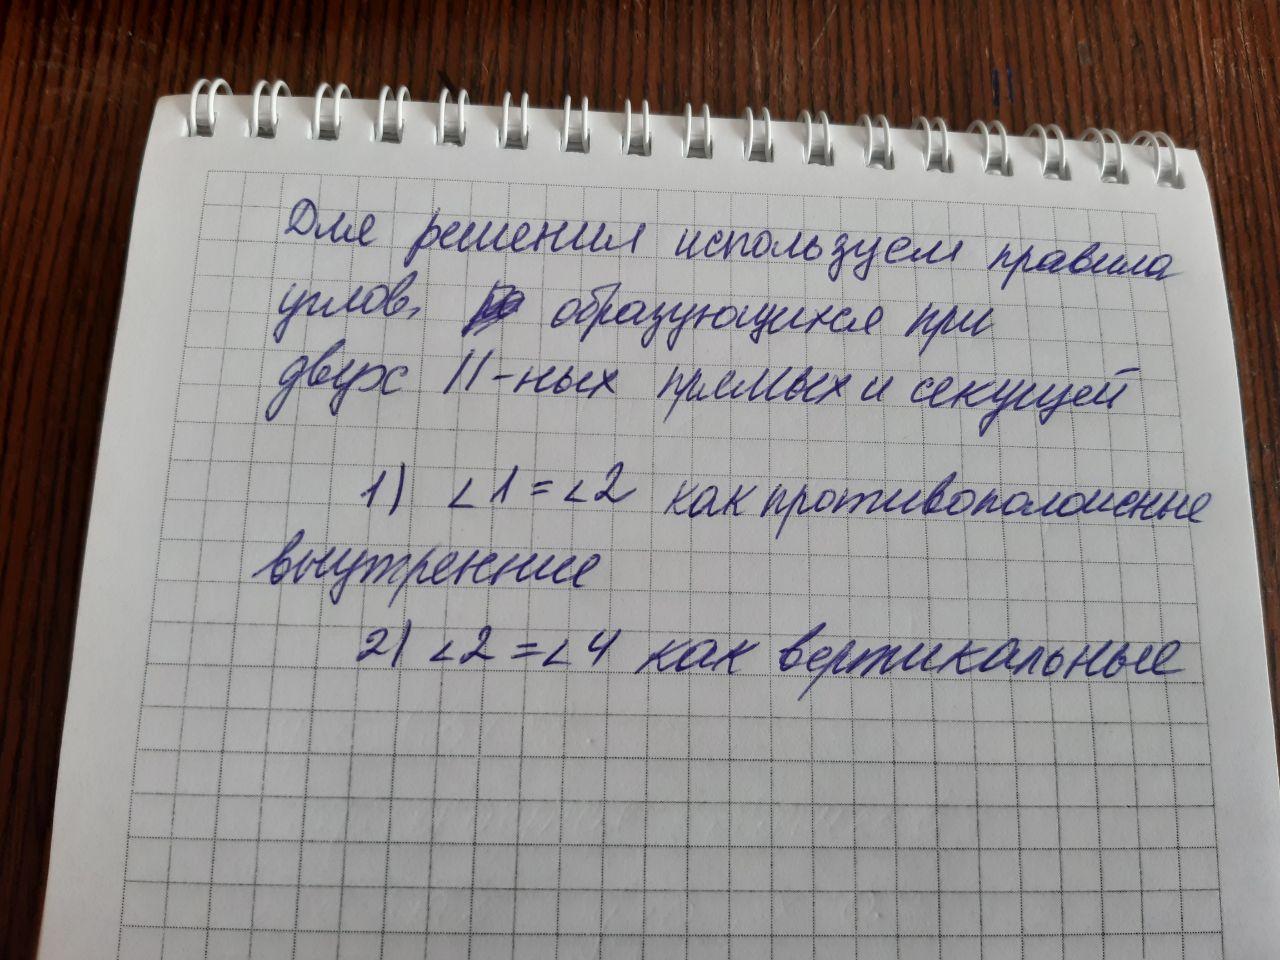 Для решения используем правила
углов, образующихся при
двух ||-ных прямых и секущей
1) ∠1 = ∠2 как противоположные
внутренние
2) ∠2 = ∠4 как вертикальные